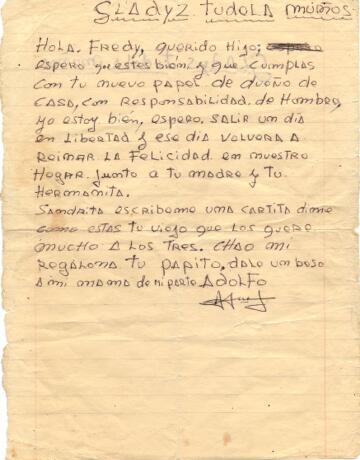 GLADYZ TUDELA MUÑOS
HOLA. FREDY, QUERIDO HIJO;
ESPERO que estes bien y que CUMPLAS
CON tu NUEVO PAPEL DE DUEÑO DE
CASA, CON RESPONSABILIDAD. de HOMBRE,
yo estoy bien, espero. SALIR UM DIA
en LIBERTAD y ese dia VOLVERA A
REIMAR LA FELICIDAD. en MUESTRO
HOGAR. junto A tu MADRE y tu
HERMAMITA.
SAMDRITA ESCRIBEME UMA CARTITA dime
como estas tu viejo que LOS quere
MUCHO A LOS TRES. CHAO MI
REGALOMA tu PAPITO, dale um beso
A mi MAMA de mi parte ADOLFO